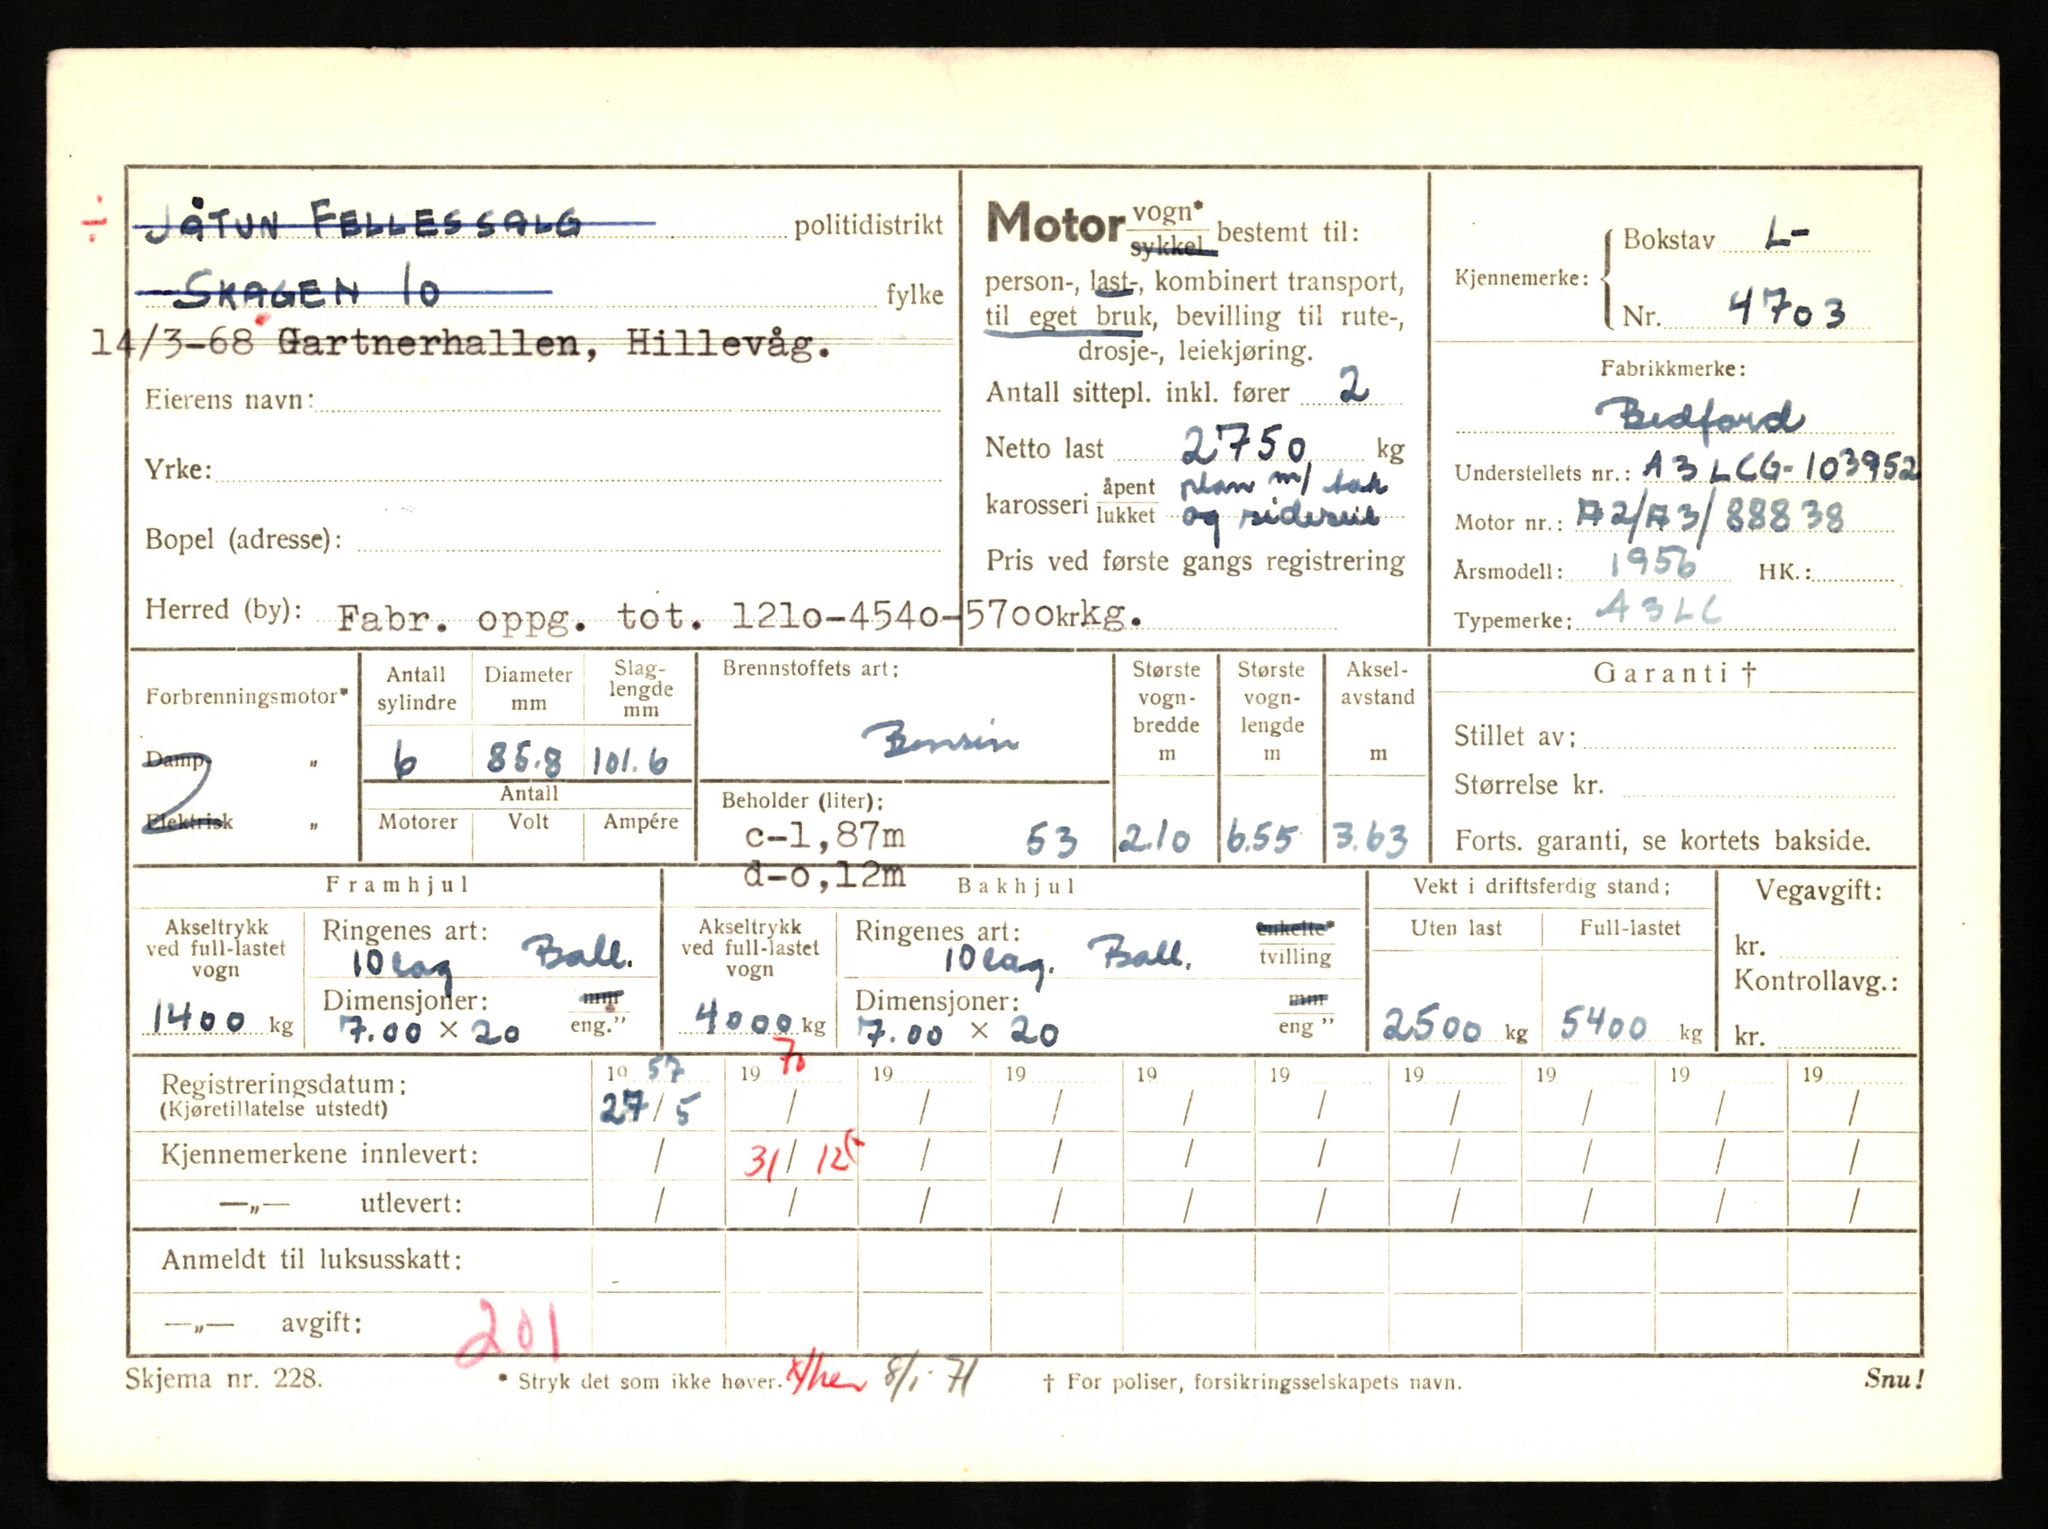 ÷ JÅTUN FELLESSALG politidistrikt
SKAGEN 10 fylke
14/3-68 Gartnerhallen, Hillevåg.
Eierens navn:
Yrke:
Bopel (adresse):
Herred (by): Fabr. oppg. tot. 1210-4540-5700kr kg.
Motor vogn* sykkel bestemt til:
person-, last-, kombinert transport,
til eget bruk, bevilling til rute-,
drosje-, leiekjøring.
Antall sittepl. inkl. fører 2
Netto last 2750 kg
karosseri åpent lukket plan m/ tak
og sideseil
Pris ved første gangs registrering
Kjennemerke: Bokstav L-
Nr. 4703
Fabrikkmerke:
Bedford
Understellets nr.: A3LCG-103952
Motor nr.: A2/A3/88838
Årsmodell: 1956 HK.:
Typemerke: A3LC
Forbrenningsmotor*
Damp "
Elektrisk "
Antall sylindre
Diameter mm
Slag-
lengde
mm
6 85.8 101.6
Antall
Motorer Volt Ampére
Brennstoffets art:
Bensin
Beholder (liter):
c-1,87m 53
d-o,12m
Største
vogn-
bredde
m
2.10
Største
vogn-
lengde
m
6.55
Aksel-
avstand
m
3.63
Garanti †
Stillet av:
Størrelse kr.
Forts. garanti, se kortets bakside.
Framhjul
Akseltrykk
ved full-lastet
vogn
1400 kg
Ringenes art:
10 lag Ball.
Dimensjoner: mm
7.00 × 20 eng."
Bakhjul
Akseltrykk
ved full-lastet
vogn
4000 kg
Ringenes art: enkelte*
10 lag. Ball. tvilling
Dimensjoner: mm
7.00 × 20 eng "
Vekt i driftsferdig stand:
Uten last Full-lastet
2500 kg 5400 kg
Vegavgift:
kr.
Kontrollavg.:
kr.
Registreringsdatum: 19 57 19 70 19 19 19 19 19 19 19 19
(Kjøretillatelse utstedt) 27/5 / / / / / / / / /
Kjennemerkene innlevert: / 31/12 / / / / / / / /
—„— utlevert: / / / / / / / / / /
Anmeldt til luksusskatt:
—„— avgift: 201
Skjema nr. 228. * Stryk det som ikke høver. 8/1-71 † For poliser, forsikringsselskapets navn. Snu!